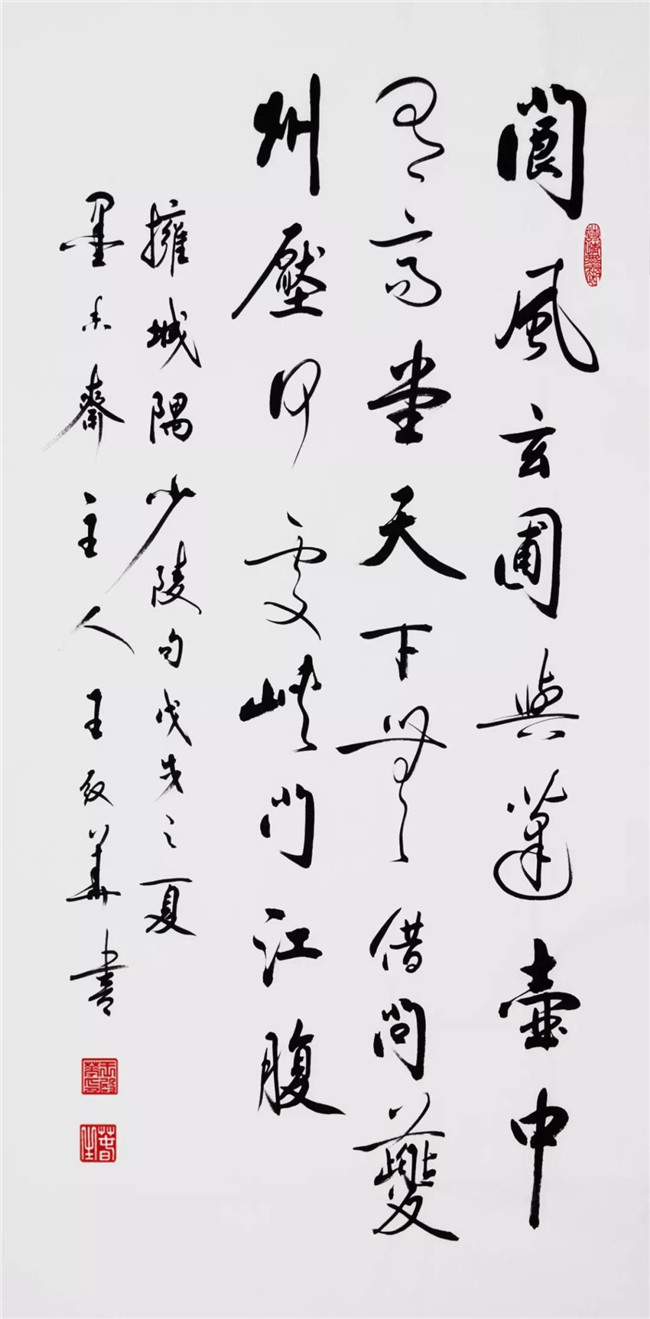 閬風玄圃與蓬壺中
有高堂天下無借問夔
州壓何處峽門江腹
擁城隅少陵句戊戌之夏
墨香齋主人王華書